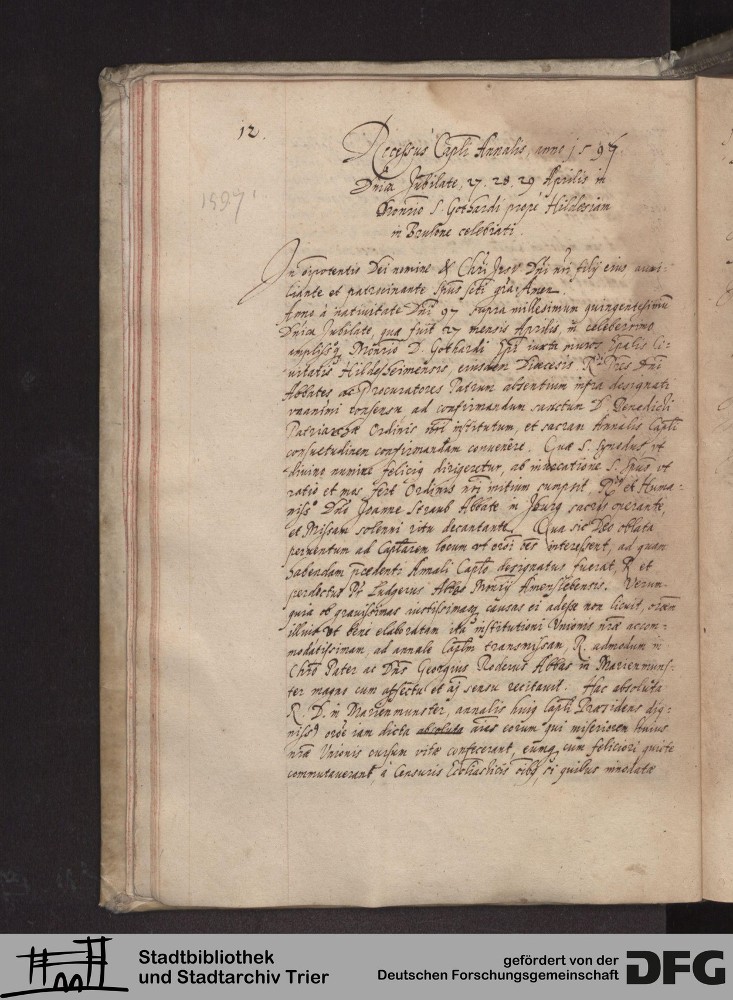 12.
Recessus Capli Annalis, anno 1597
Dnica Jubilate, 27. 28. 29 Aprilis in
Monrio S. Gothardi prope Hildesiam
in Brulone celebrati.
1597
In oipotentis Dei nomine & Chri Jesv Dni nri filij eius auxi:
liante et patrocinante Spus scti gra Amen.
Anno à nativitate Dni 97 supra millesimum quingentesimū
Dnica Jubilate, quæ fuit 27 mensis Aprilis, in celeberrimo
ampliss. Monrio D. Gothardi Epi iuxta muros Epalis Ci:
uitatis Hildesheimensis, eiusdem Diœcesis. R. Pres Dni
Abbates ac Procuratores Patrum absentium infra designati
vnanimi consensu ad confirmandum sanctum D. Benedicti
Patriarchæ Ordinis nri institutum, et sacram Annalis Capli
consuetudinem confirmandam convenêre. Quæ S. synodus vt
divino numine felicius dirigeretur, ab invocatione S. Spus vt
ratio et mos fert Ordinis nri initium sumpsit. R. et Huma:
niss. Dno Joanne Straub Abbate in Jburg sacris operante,
et Missam solenni ritu decantante. Qua sic Deo oblata
perventum ad Caplarem locum vt ordi oes interessent, ad quam
habendam præcedenti Annali Caplo designatus fuerat, R. et
perdoctus Pr Ludgerus Abbas Monrij Amenslebensis. Verum
quia ob gravissimas iustissimasq causas ei adesse non licuit, orōem
illius vt bene elaboratam ita institutioni Unionis nræ accom:
modatissimam, ad annale Caplm transmissam, R. admodum in
Chro Pater ac Dns Georgius Roderus Abbas in Marienmuns:
ter magno cum affectu et aī sensu recitauit. Hac absoluta
R. D. in Marienmunster, annalis huius Capli Præsidens dig:
niss. orōe iam dicta absoluta aīas eorum qui miseriorem huius
nræ Unionis cursum vitæ confecerant, eumq cum feliciori quiete
commutaverant, à Censuris Ecclesiasticis oibus, si quibus innodatæ
Stadtbibliothek
und Stadtarchiv Trier
gefördert von der
Deutschen Forschungsgemeinschaft
DFG